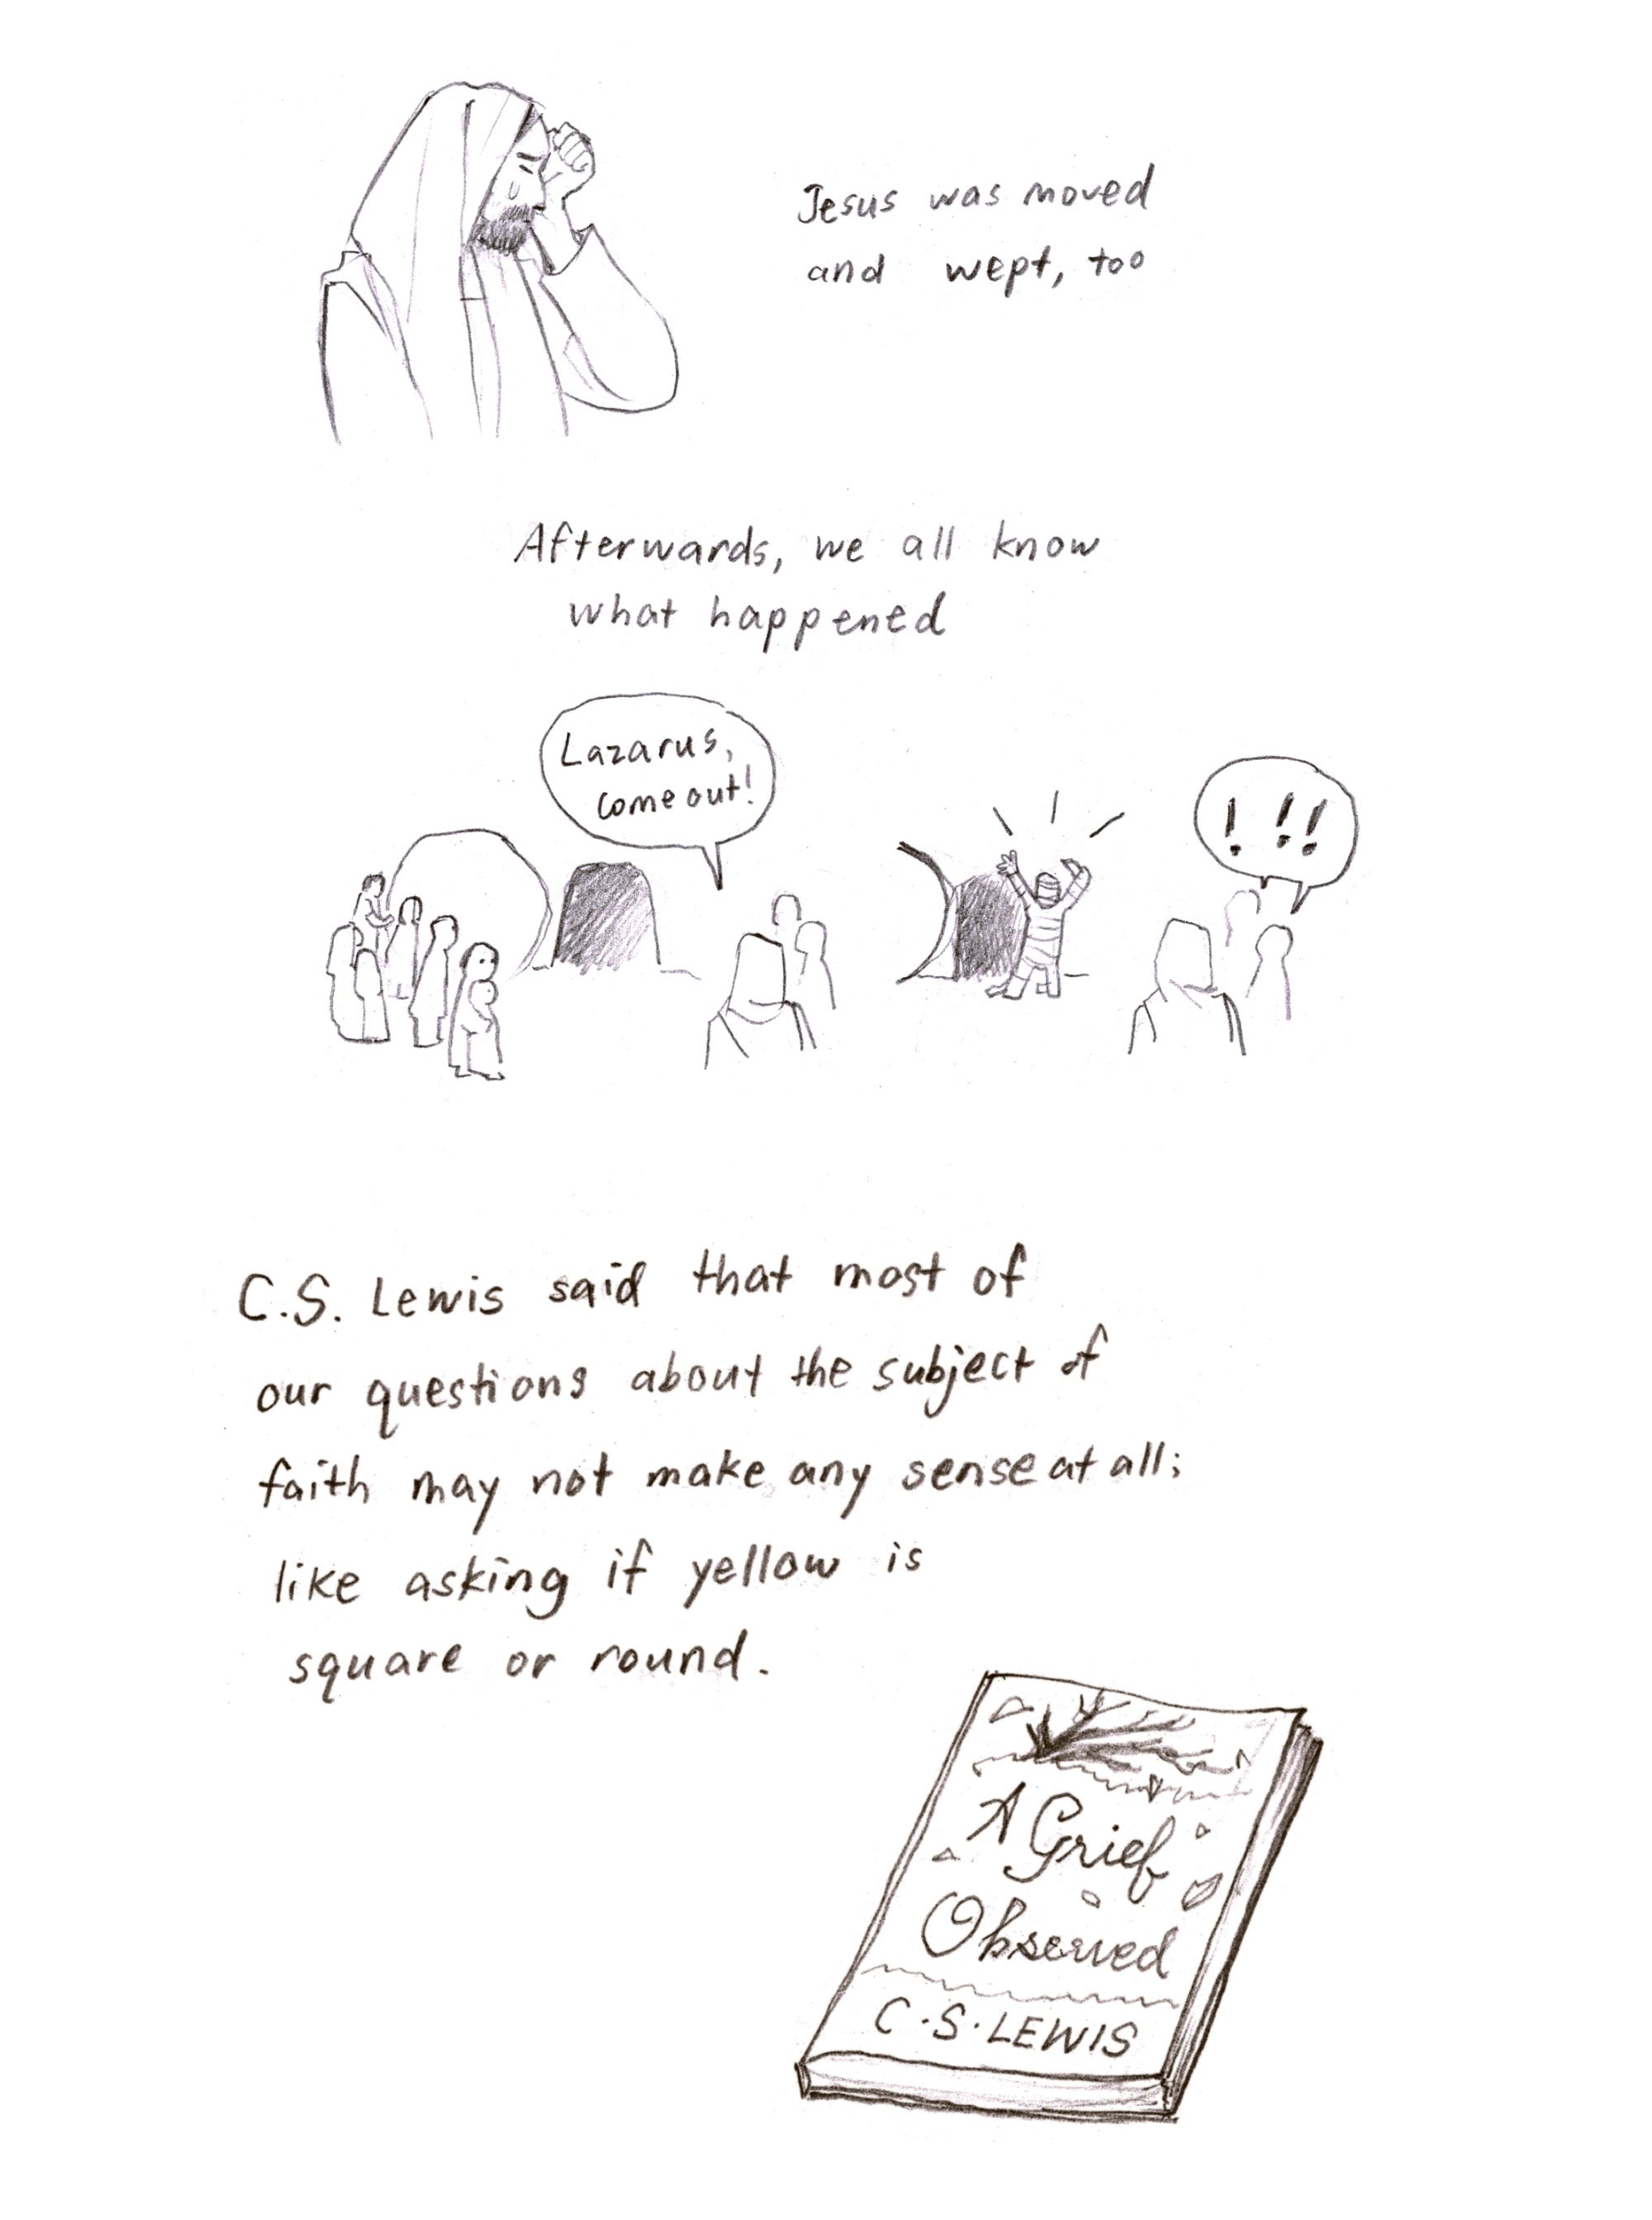 Jesus was moved
and wept, too
Afterwards, we all know
what happened
Lazarus,
come out!
! !!
C.S. Lewis said that most of
our questions about the subject of
faith may not make any sense at all;
like asking if yellow is
square or round.
A Grief
Observed
C.S. LEWIS